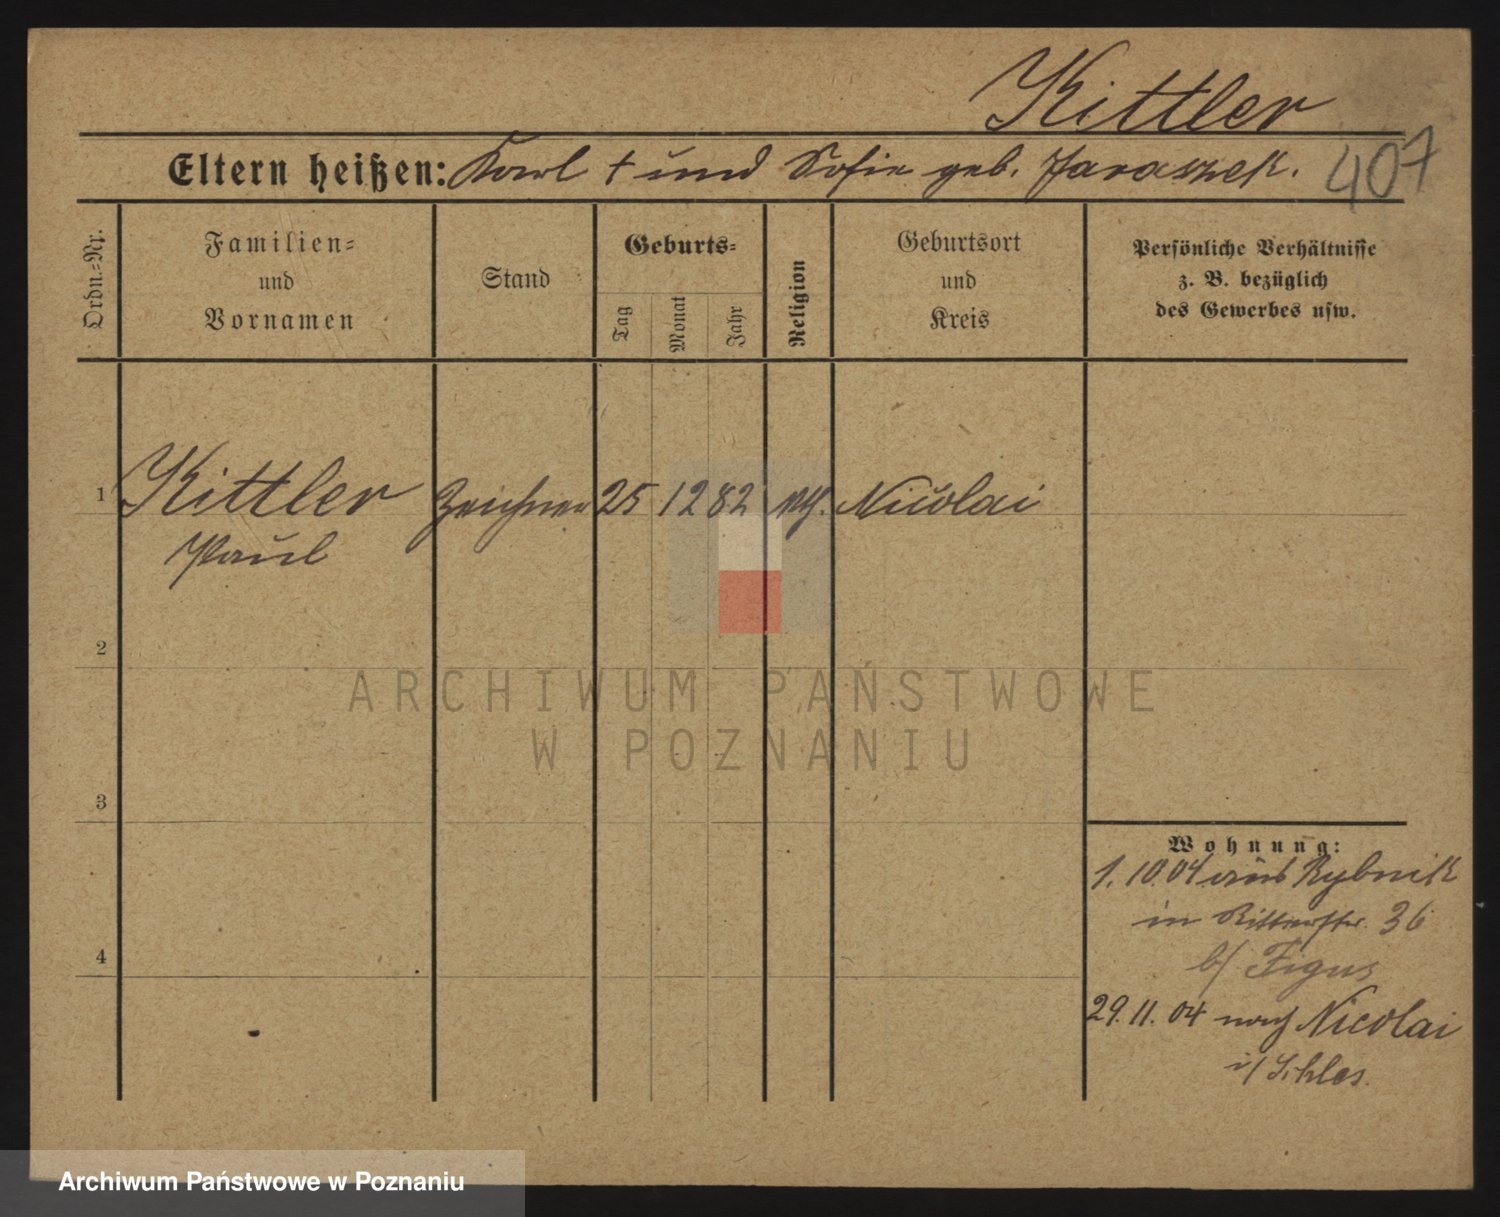 Kittler
Eltern heißen: Karl † und Sofie geb. Jaraszek.
407
Ordn.-Nr.
Familien-
und
Vornamen
Stand
Geburts-
Tag
Monat
Jahr
Religion
Geburtsort
und
Kreis
Persönliche Verhältnisse
z. B. bezüglich
des Gewerbes usw.
1 Kittler Zeichner 25 12 82 Nicolai
Paul
2
ARCHIWUM PAŃSTWOWE
W POZNANIU
3
Wohnung:
1. 10.04 aus Rybnik
in Ritterstr. 36
b/ Figus
4
29. 11. 04 nach Nicolai
i/ Schles.
Archiwum Państwowe w Poznaniu